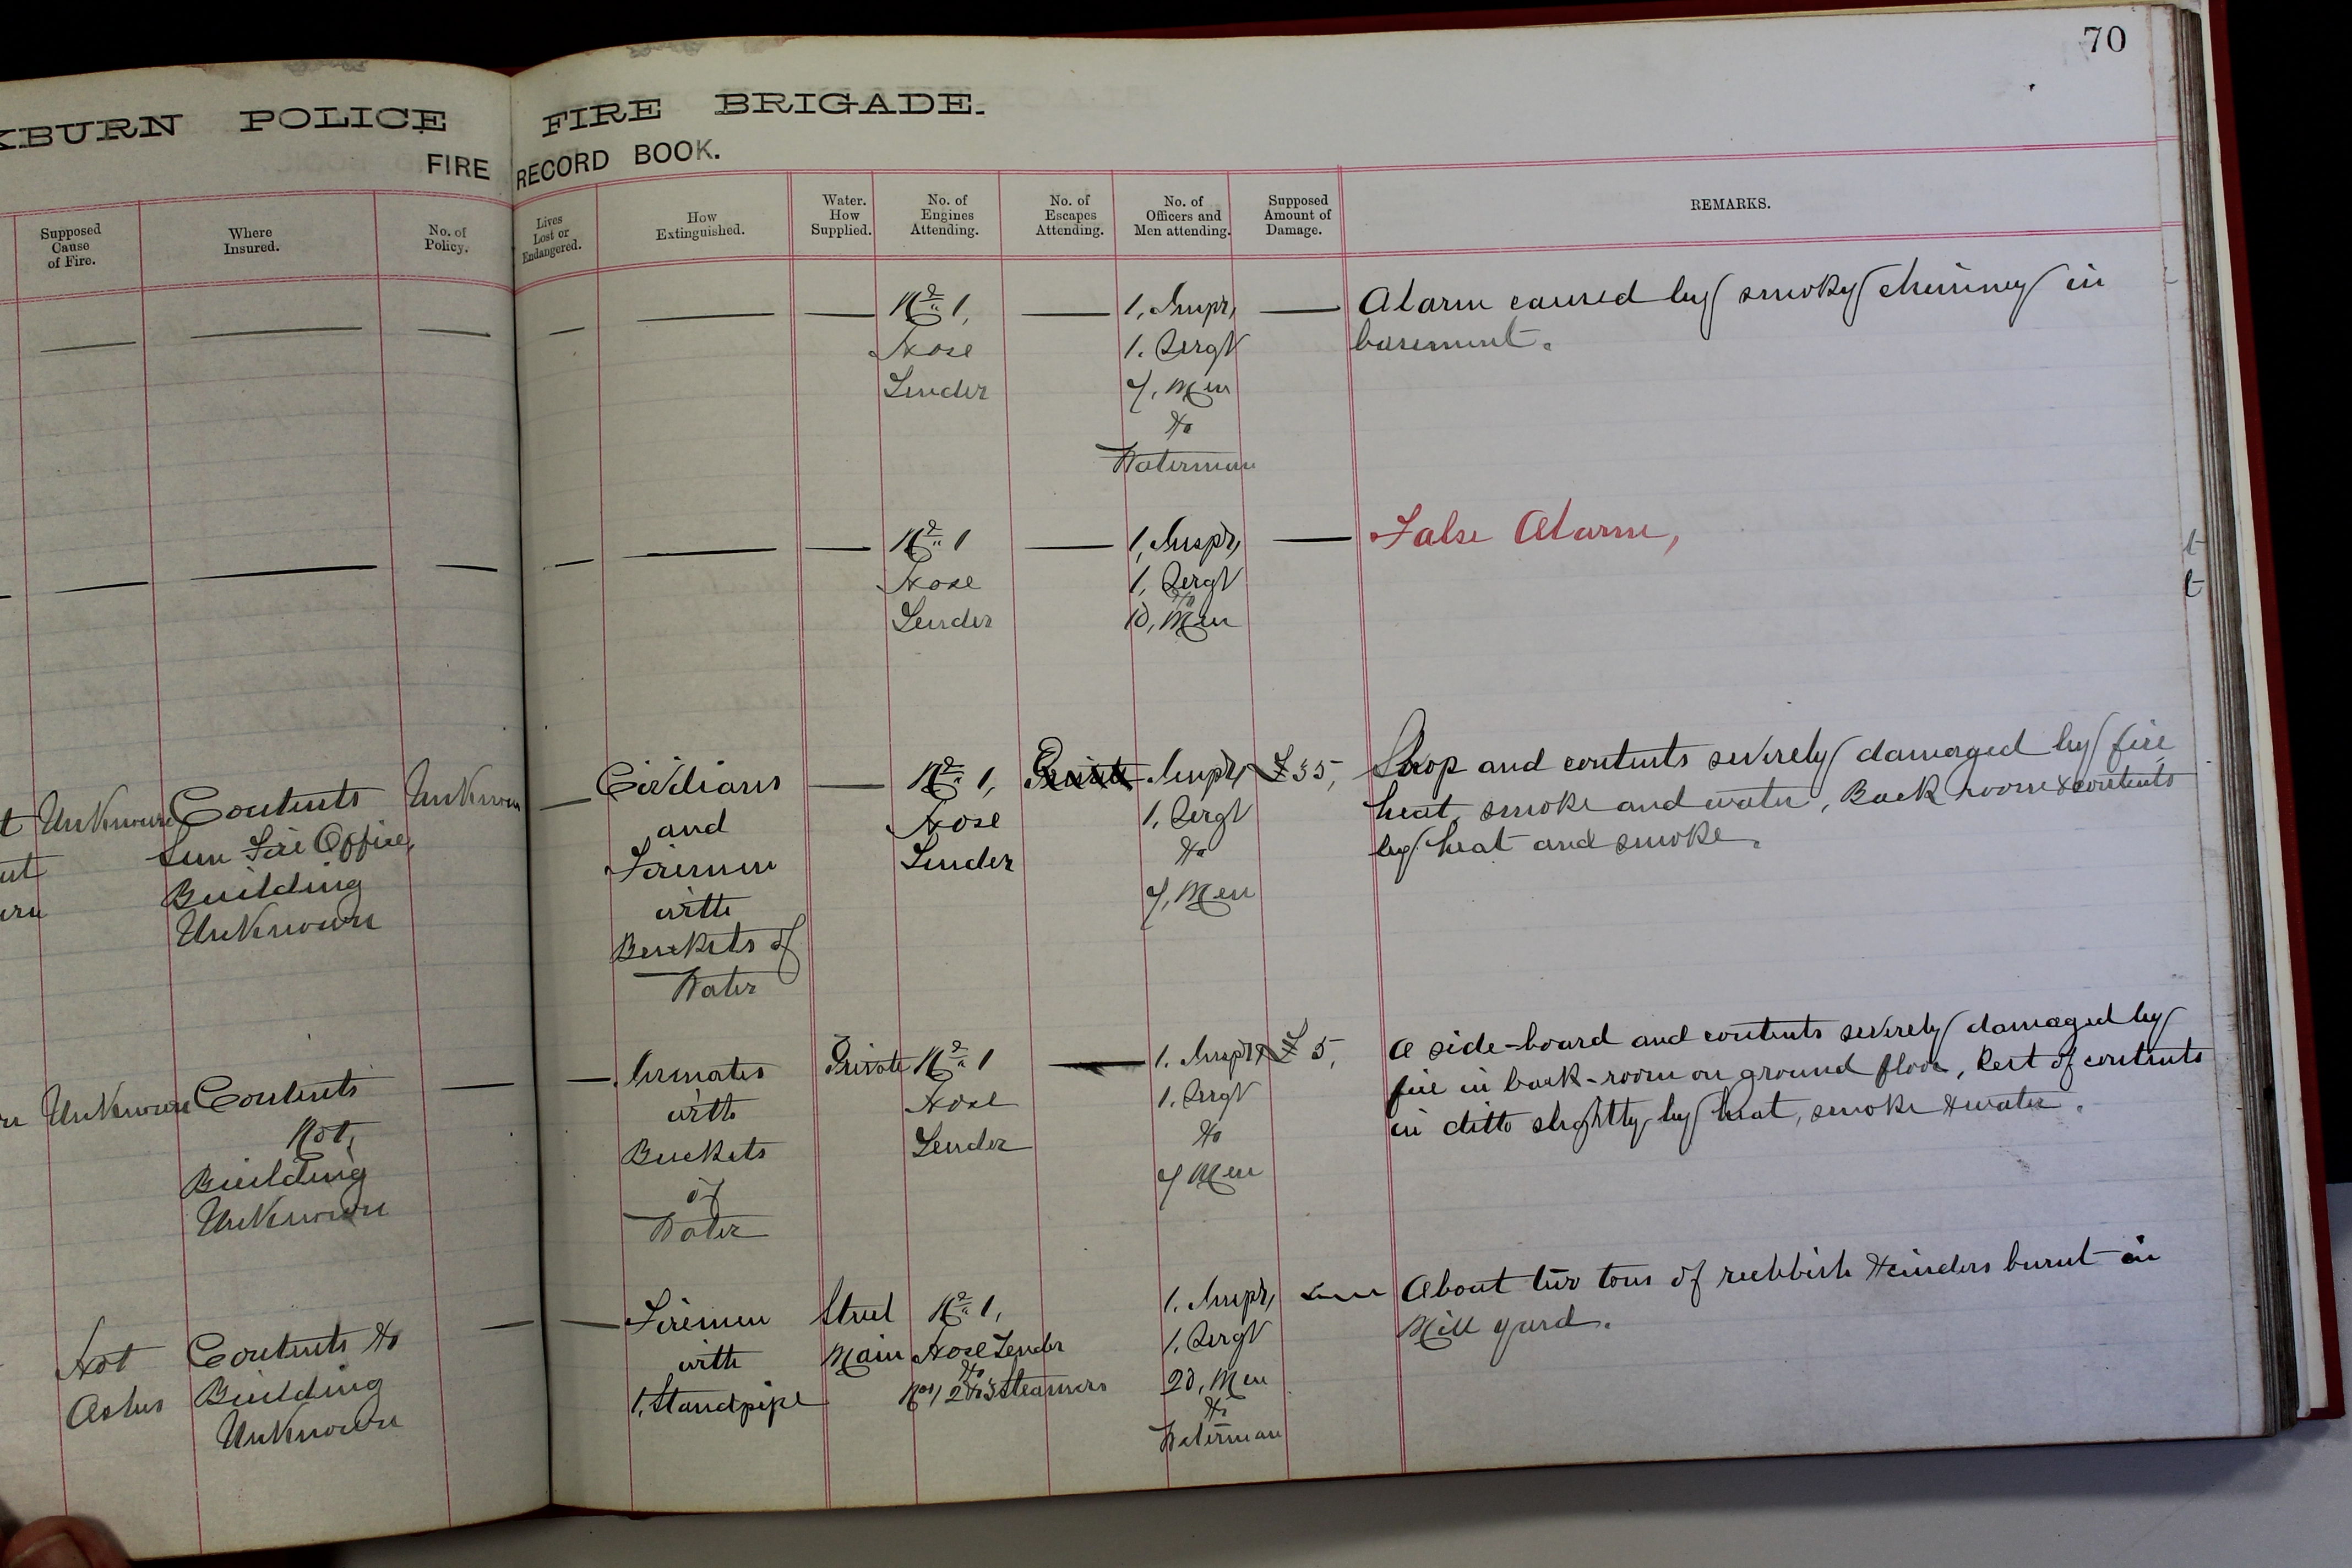 70
KBURN POLICE FIRE BRIGADE.
FIRE RECORD BOOK.
Supposed Cause of Fire.
Where Insured.
No. of Policy.
Lives Lost or Endangered.
How Extinguished.
Water. How Supplied.
No. of Engines Attending.
No. of Escapes Attending.
No. of Officers and Men attending.
Supposed Amount of Damage.
REMARKS.
No 1,
Hose
Tender
1, Inspr,
1. Sergt
7, Men
&
Waterman
Alarm caused by smoky chimney in
basement.
No 1
Hose
Tender
1, Inspr,
1, Sergt
&
10, Men
False Alarm,
Unknown
Contents
Sun Fire Office,
Building
Unknown
Unknown
Civilians
and
Firemen
with
Buckets of
Water
No 1,
Hose
Tender
Private
Inspr,
1, Sergt
&
7, Men
£35,
Shop and contents severely damaged by fire,
heat, smoke and water, Back room & contents
by heat and smoke.
Unknown
Contents
Not,
Building
Unknown
Inmates
with
Buckets
of
Water
Private
No 1
Hose
Tender
1. Inspr,
1. Sergt
&
7 Men
£5,
A side-board and contents severely damaged by
fire in back-room on ground floor, Rest of contents
in ditto slightly by heat, smoke & water.
Hot
Ashes
Contents &
Building
Unknown
Firemen
with
1, Standpipe
Street
Main
No 1,
Hose Tender
&
Nos, 2 & 3 Steamers
1. Inspr,
1. Sergt
20, Men
&
Waterman
About two tons of rubbish & cinders burnt in
Mill yard.